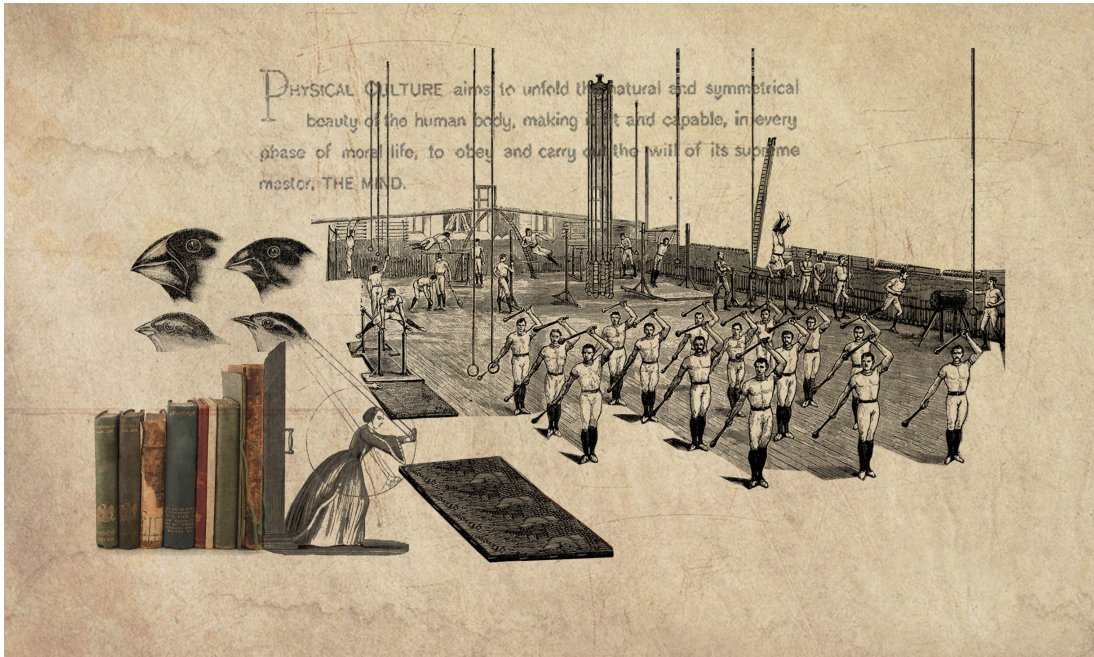 PHYSICAL CULTURE aims to unfold the natural and symmetrical
beauty of the human body, making it fit and capable, in every
phase of moral life, to obey and carry out the will of its supreme
master, THE MIND.